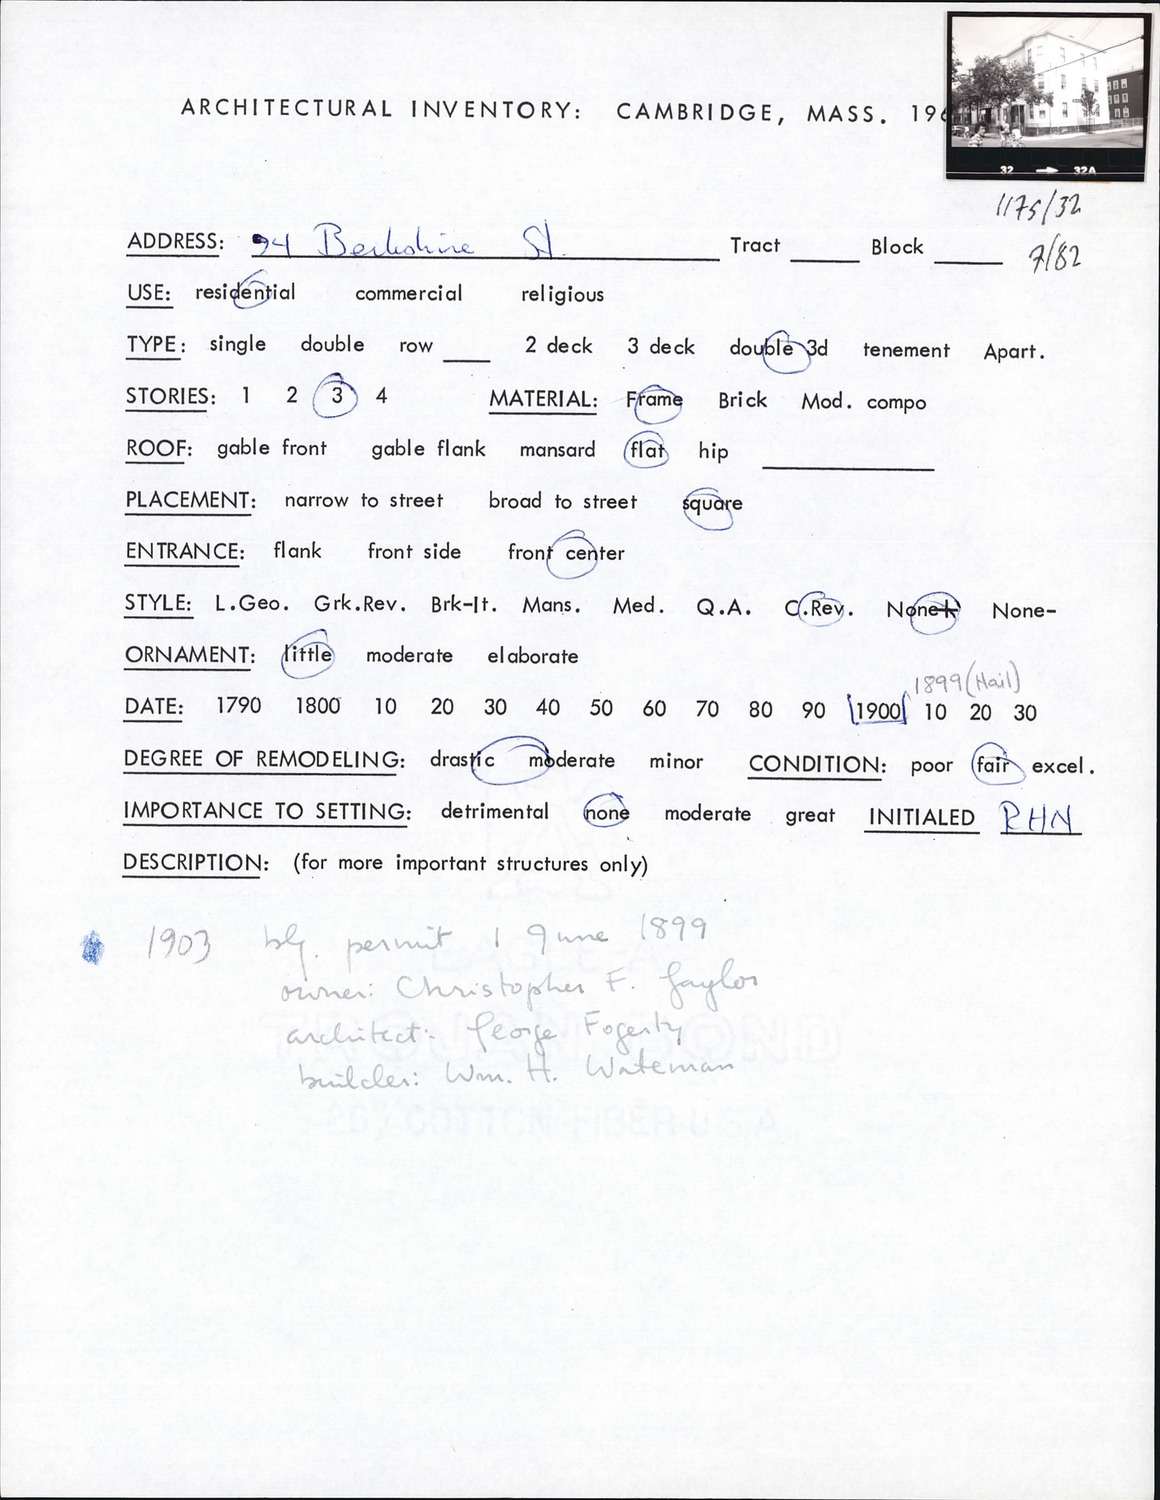 ARCHITECTURAL INVENTORY: CAMBRIDGE, MASS. 196
32 → 32A
1175/32
7/82
ADDRESS: 94 Berkshire St. Tract ____ Block ____
USE: residential commercial religious
TYPE: single double row ____ 2 deck 3 deck double 3d tenement Apart.
STORIES: 1 2 3 4 MATERIAL: Frame Brick Mod. compo
ROOF: gable front gable flank mansard flat hip ____
PLACEMENT: narrow to street broad to street square
ENTRANCE: flank front side front center
STYLE: L.Geo. Grk.Rev. Brk-It. Mans. Med. Q.A. C.Rev. None+ None-
ORNAMENT: little moderate elaborate
1899 (Hail)
DATE: 1790 1800 10 20 30 40 50 60 70 80 90 1900 10 20 30
DEGREE OF REMODELING: drastic moderate minor CONDITION: poor fair excel.
IMPORTANCE TO SETTING: detrimental none moderate great INITIALED RHN
DESCRIPTION: (for more important structures only)
1903 blg. permit 1 June 1899
owner: Christopher F. Gaylor
architect: George Fogerty
builder: Wm. H. Wateman